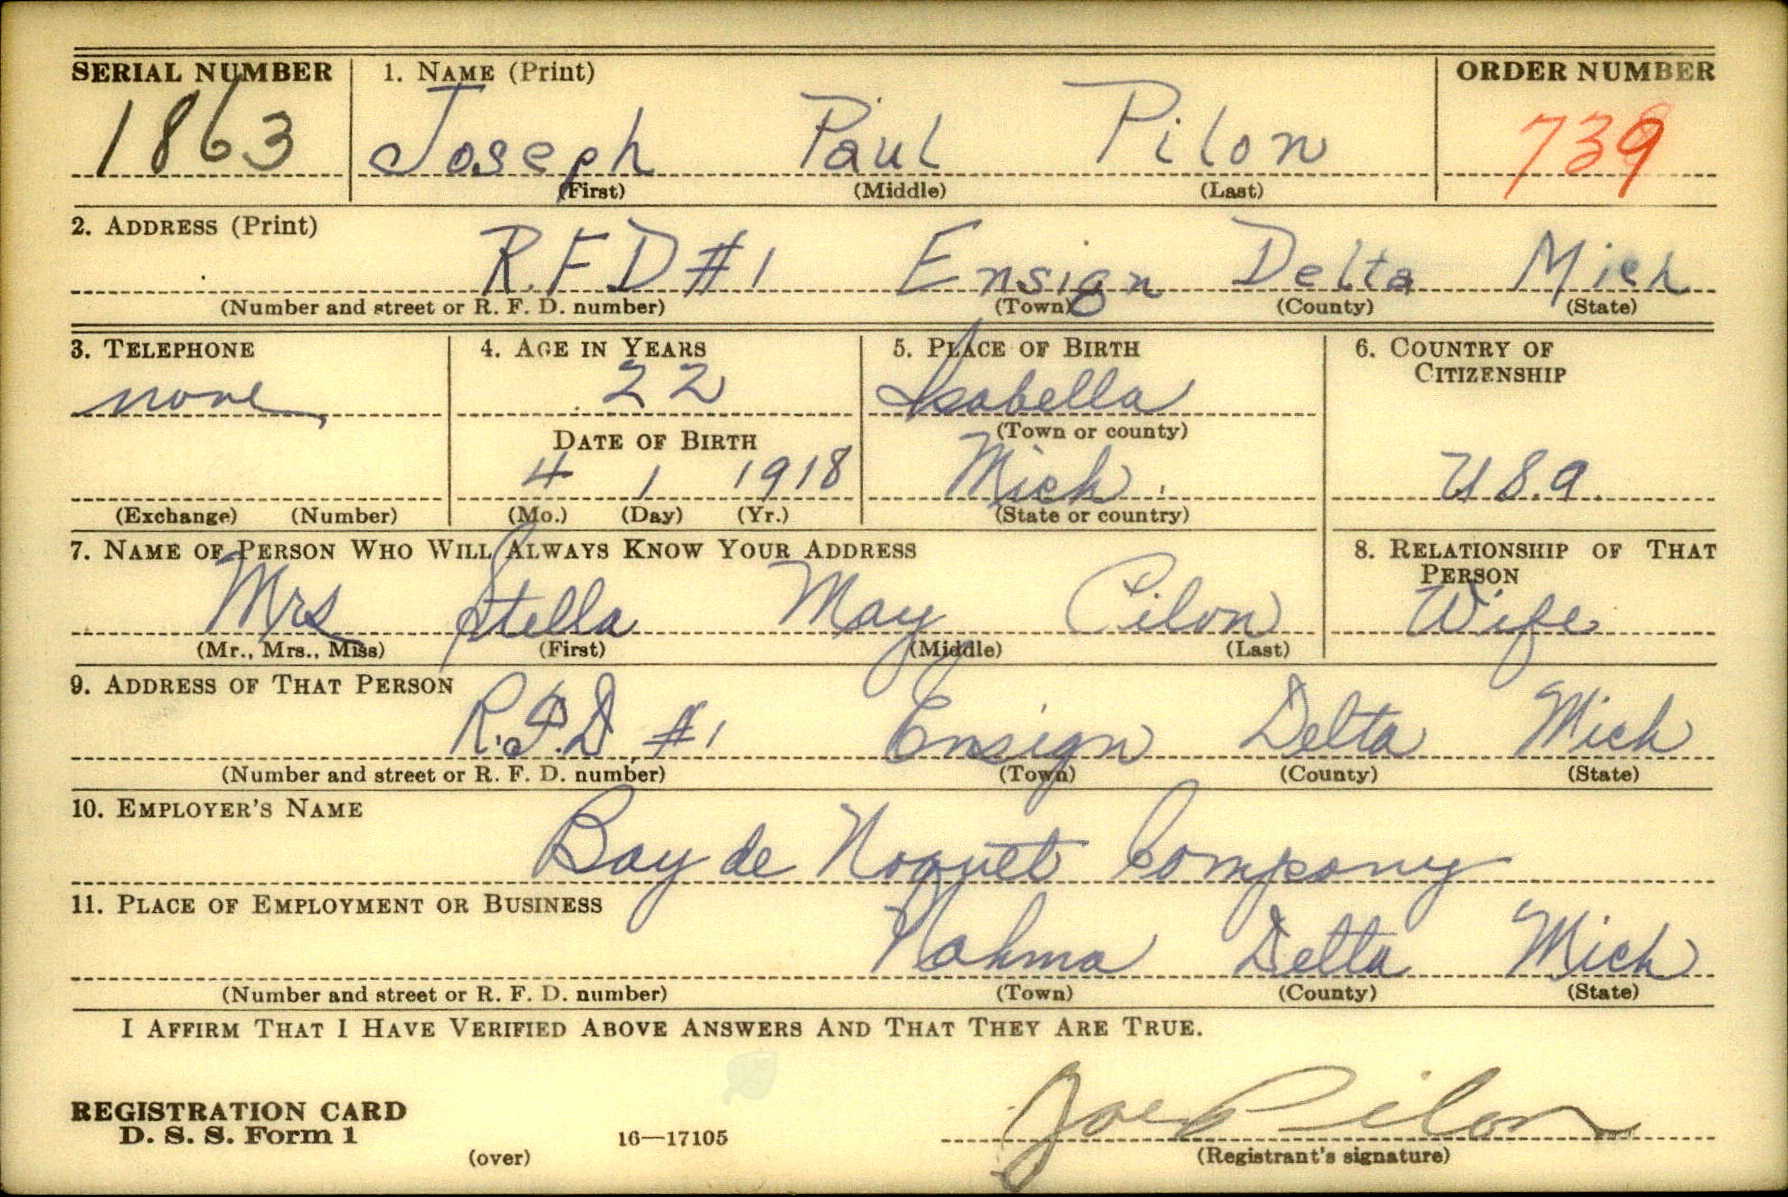 SERIAL NUMBER 1. NAME (Print) ORDER NUMBER
1863 Joseph Paul Pilon 739
(First) (Middle) (Last)
2. ADDRESS (Print)
R.F.D #1 Ensign Delta Mich
(Number and street or R. F. D. number) (Town) (County) (State)
3. TELEPHONE 4. AGE IN YEARS 5. PLACE OF BIRTH 6. COUNTRY OF
CITIZENSHIP
none 22 Isabella
DATE OF BIRTH (Town or county)
4 1 1918 Mich U.S.a.
(Exchange) (Number) (Mo.) (Day) (Yr.) (State or country)
7. NAME OF PERSON WHO WILL ALWAYS KNOW YOUR ADDRESS 8. RELATIONSHIP OF THAT
PERSON
Mrs Stella May Pilon Wife
(Mr., Mrs., Miss) (First) (Middle) (Last)
9. ADDRESS OF THAT PERSON
R.F.D #1 Ensign Delta Mich
(Number and street or R. F. D. number) (Town) (County) (State)
10. EMPLOYER'S NAME
Bay de Noquet Company
11. PLACE OF EMPLOYMENT OR BUSINESS
Nahma Delta Mich
(Number and street or R. F. D. number) (Town) (County) (State)
I AFFIRM THAT I HAVE VERIFIED ABOVE ANSWERS AND THAT THEY ARE TRUE.
REGISTRATION CARD
D. S. S. Form 1 16—17105 Joe Pilon
(over) (Registrant's signature)